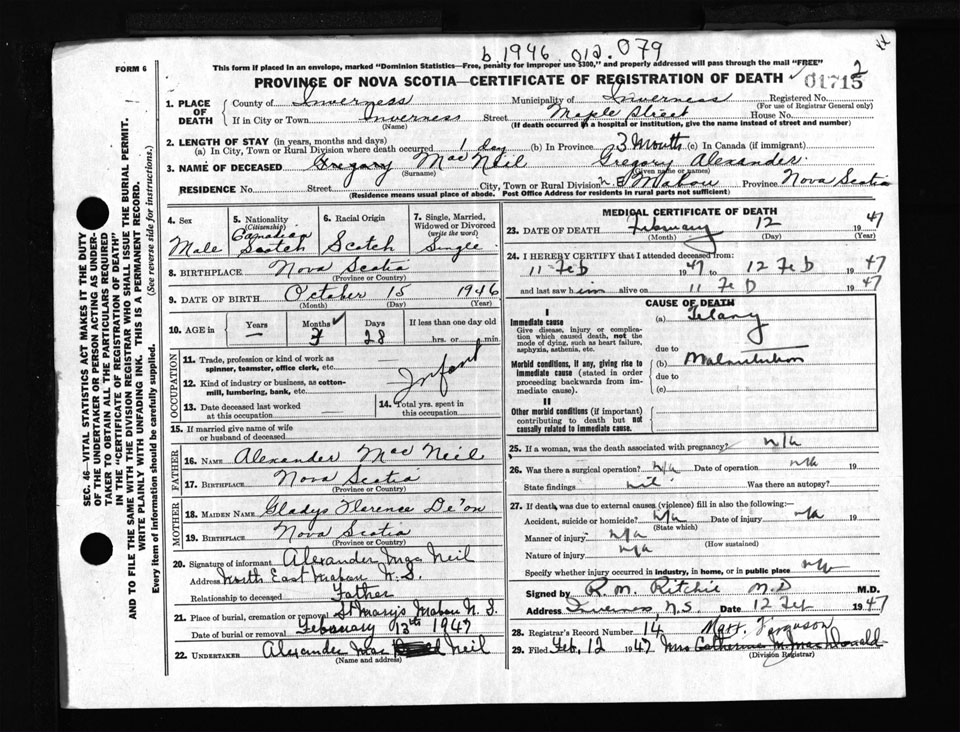 b 1946 012.079
FORM 6
This form if placed in an envelope, marked "Dominion Statistics—Free, penalty for improper use $300," and properly addressed will pass through the mail "FREE"
PROVINCE OF NOVA SCOTIA—CERTIFICATE OF REGISTRATION OF DEATH
01715 2
1. PLACE OF DEATH
County of Inverness Municipality of Inverness Registered No.
(For use of Registrar General only)
If in City or Town Inverness Street Maple Street House No.
(Name) (If death occurred in a hospital or institution, give the name instead of street and number)
2. LENGTH OF STAY (in years, months and days)
(a) In City, Town or Rural Division where death occurred 1 day (b) In Province 3 Months (c) In Canada (if immigrant)
3. NAME OF DECEASED Gregory MacNeil Gregory Alexander.
(Surname) (Given name or names)
RESIDENCE No. Street City, Town or Rural Division N.E. Mabou Province Nova Scotia
(Residence means usual place of abode. Post Office Address for residents in rural parts not sufficient)
4. Sex Male
5. Nationality (Citizenship) Canadian Scotch
6. Racial Origin Scotch
7. Single, Married, Widowed or Divorced (write the word) Single.
8. BIRTHPLACE Nova Scotia
(Province or Country)
9. DATE OF BIRTH October 15 1946
(Month) (Day) (Year)
10. AGE in Years — Months 3 Days 28 If less than one day old hrs. or min.
OCCUPATION
11. Trade, profession or kind of work as spinner, teamster, office clerk, etc.
12. Kind of industry or business, as cotton-mill, lumbering, bank, etc.
Infant
13. Date deceased last worked at this occupation
14. Total yrs. spent in this occupation
15. If married give name of wife or husband of deceased
FATHER
16. NAME Alexander MacNeil
17. BIRTHPLACE Nova Scotia
(Province or Country)
MOTHER
18. MAIDEN NAME Gladys Florence De'on
19. BIRTHPLACE Nova Scotia
(Province or Country)
20. Signature of informant Alexander MacNeil
Address North East Mabou N.S.
Relationship to deceased Father
21. Place of burial, cremation or removal St Mary's Mabou N.S.
Date of burial or removal February 13th 1947
22. UNDERTAKER Alexander Mac Neil
(Name and address)
MEDICAL CERTIFICATE OF DEATH
23. DATE OF DEATH February 12 1947
(Month) (Day) (Year)
24. I HEREBY CERTIFY that I attended deceased from:
11 Feb 1947 to 12 Feb 1947
and last saw him alive on 11 Feb 1947
CAUSE OF DEATH
I
Immediate cause (a)
Give disease, injury or complication which caused death, not the mode of dying, such as heart failure, asphyxia, asthenia, etc.
due to
Morbid conditions, if any, giving rise to immediate cause (stated in order proceeding backwards from immediate cause).
(b) Malnutrition
due to
(c)
II
Other morbid conditions (if important) contributing to death but not causally related to immediate cause.
25. If a woman, was the death associated with pregnancy? n/a
26. Was there a surgical operation? n/a Date of operation n/a 19
State findings nil Was there an autopsy?
27. If death was due to external causes (violence) fill in also the following:—
Accident, suicide or homicide? n/a Date of injury n/a 19
(State which)
Manner of injury n/a
(How sustained)
Nature of injury n/a
Specify whether injury occurred in industry, in home, or in public place n/a
Signed by R. M. Ritchie M.D M.D.
Address Inverness N.S. Date 12 Feb 1947
28. Registrar's Record Number 14 Mary Ferguson
29. Filed Feb. 12 1947 Mrs Catherine M. MacDonald
(Division Registrar)
SEC. 46—VITAL STATISTICS ACT MAKES IT THE DUTY
OF THE UNDERTAKER OR PERSON ACTING AS UNDER-
TAKER TO OBTAIN ALL THE PARTICULARS REQUIRED
IN THE "CERTIFICATE OF REGISTRATION OF DEATH"
AND TO FILE THE SAME WITH THE DIVISION REGISTRAR WHO SHALL ISSUE THE BURIAL PERMIT.
WRITE PLAINLY WITH UNFADING INK. THIS IS A PERMANENT RECORD.
Every item of information should be carefully supplied. (See reverse side for instructions.)